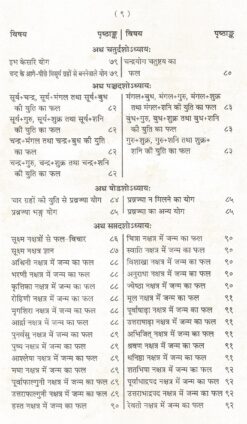 ( ९ )
विषय पृष्ठाङ्क
अथ चतुर्दशोऽध्यायः
इभ केसरि योग ७९
चन्द्र के आगे-पीछे विमुर्य ग्रहों से बननेवाले योग ७९
अथ पञ्चदशोऽध्यायः
सूर्य+चन्द्र, सूर्य+मंगल तथा सूर्य+बुध
की युति का फल ८२
सूर्य+गुरु, सूर्य+शुक्र तथा सूर्य+शनि
की युति का फल ८२
चन्द्र+मंगल तथा चन्द्र+बुध की युति
का फल ८२
चन्द्र+गुरु, चन्द्र+शुक्र तथा चन्द्र+शनि
की युति का फल ८२
अथ षोडशोऽध्यायः
चार ग्रहों की युति से प्रव्रज्या योग ८४
प्रव्रज्या भङ्ग योग ८५
अथ सप्तदशोऽध्यायः
सूक्ष्म नक्षत्रों से फल-विचार ८६
सूक्ष्म नक्षत्र ज्ञान ८७
अश्विनी नक्षत्र में जन्म का फल ८८
भरणी नक्षत्र में जन्म का फल ८८
कृत्तिका नक्षत्र में जन्म का फल ८८
रोहिणी नक्षत्र में जन्म का फल ८८
मृगशिरा नक्षत्र में जन्म का फल ८८
आर्द्रा नक्षत्र में जन्म का फल ८८
पुनर्वसु नक्षत्र में जन्म का फल ८९
पुष्य नक्षत्र में जन्म का फल ८९
आश्लेषा नक्षत्र में जन्म का फल ८९
मघा नक्षत्र में जन्म का फल ८९
पूर्वाफाल्गुनी नक्षत्र में जन्म का फल ८९
उत्तराफाल्गुनी नक्षत्र में जन्म का फल ८९
हस्त नक्षत्र में जन्म का फल ९०
विषय पृष्ठाङ्क
चन्द्रयोग चतुष्टय का
फल ८०
मंगल+बुध, मंगल+गुरु, मंगल+शुक्र
तथा मंगल+शनि की युति का फल ८३
बुध+गुरु, बुध+शुक्र तथा बुध+शनि
की युति का फल ८३
गुरु+शुक्र, गुरु+शनि तथा शुक्र+
शनि की युति का फल ८३
प्रव्रज्या न मिलने का योग ८५
प्रव्रज्या का अन्य योग ८५
चित्रा नक्षत्र में जन्म का फल ९०
स्वाति नक्षत्र में जन्म का फल ९०
विशाखा नक्षत्र में जन्म का फल ९०
अनुराधा नक्षत्र में जन्म का फल ९०
ज्येष्ठा नक्षत्र में जन्म का फल ९०
मूल नक्षत्र में जन्म का फल ९१
पूर्वाषाढ़ा नक्षत्र में जन्म का फल ९१
उत्तराषाढ़ा नक्षत्र में जन्म का फल ९१
अभिजित् नक्षत्र में जन्म का फल ९१
श्रवण नक्षत्र में जन्म का फल ९१
धनिष्ठा नक्षत्र में जन्म का फल ९१
शतभिषा नक्षत्र में जन्म का फल ९२
पूर्वाभाद्रपद नक्षत्र में जन्म का फल ९२
उत्तराभाद्रपद नक्षत्र में जन्म का फल ९२
रेवती नक्षत्र में जन्म का फल ९२